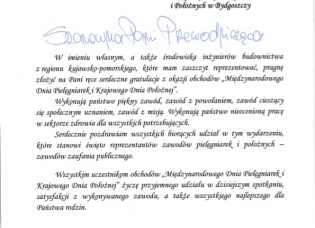 i Położnych w Bydgoszczy
Szanowna Pani Przewodnicząca
W imieniu własnym, a także środowiska inżynierów budownictwa
z regionu kujawsko-pomorskiego, które mam zaszczyt reprezentować, pragnę
złożyć na Pani ręce serdeczne gratulacje z okazji obchodów „Międzynarodowego
Dnia Pielęgniarki i Krajowego Dnia Położnej".
Wykonują państwo piękny zawód, zawód z powołaniem, zawód cieszący
się społecznym uznaniem, zawód z misją. Wykonują Państwo nieocenioną pracę
w sektorze zdrowia dla wszystkich potrzebujących.
Serdecznie pozdrawiam wszystkich biorących udział w tym wydarzeniu,
które stanowi święto reprezentantów zawodów pielęgniarek i położnych –
zawodów zaufania publicznego.
Wszystkim uczestnikom obchodów „Międzynarodowego Dnia Pielęgniarki i
Krajowego Dnia Położnej" życzę przyjemnego udziału w dzisiejszym spotkaniu,
satysfakcji z wykonywanego zawodu, a także wszystkiego najlepszego dla
Państwa rodzin.